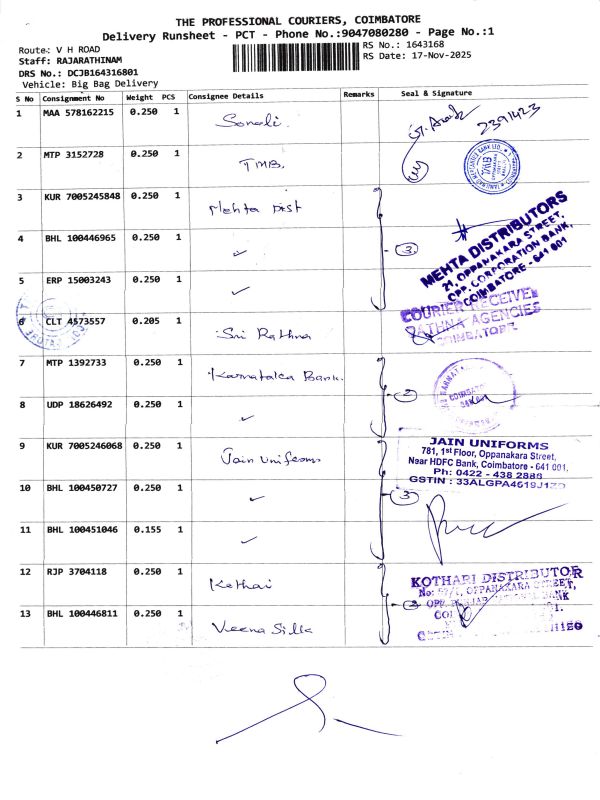 THE PROFESSIONAL COURIERS, COIMBATORE
Delivery Runsheet - PCT - Phone No.:9047080280 - Page No.:1
Route: V H ROAD
RS No.: 1643168
Staff: RAJARATHINAM
RS Date: 17-Nov-2025
DRS No.: DCJB164316801
Vehicle: Big Bag Delivery
S No Consignment No Weight PCS Consignee Details Remarks Seal & Signature
1 MAA 578162215 0.250 1 Sonali.
7391423
2 MTP 3152728 0.250 1 TMB.
TMB
3 KUR 7005245848 0.250 1 Mehta Dist
4 BHL 100446965 0.250 1 ✓
3
MEHTA DISTRIBUTORS
21, OPPANAKARA STREET,
OPP. CORPORATION BANK,
COIMBATORE - 641 001
5 ERP 15003243 0.250 1 ✓
COURIER RECEIVED
RATHNA AGENCIES
COIMBATORE.
6 CLT 4573557 0.205 1 Sri Rathna
7 MTP 1392733 0.250 1 Karnataka Bank.
2
8 UDP 18626492 0.250 1 ✓
9 KUR 7005246068 0.250 1 Jain Uniforms
JAIN UNIFORMS
781, 1st Floor, Oppanakara Street,
Near HDFC Bank, Coimbatore - 641 001.
Ph: 0422 - 438 2888
GSTIN : 33ALGPA4619J1ZD
10 BHL 100450727 0.250 1 ✓
3
11 BHL 100451046 0.155 1 ✓
12 RJP 3704118 0.250 1 Kothai
KOTHARI DISTRIBUTOR
OPPANAKARA STREET,
BANK
2
13 BHL 100446811 0.250 1 Veena Silk